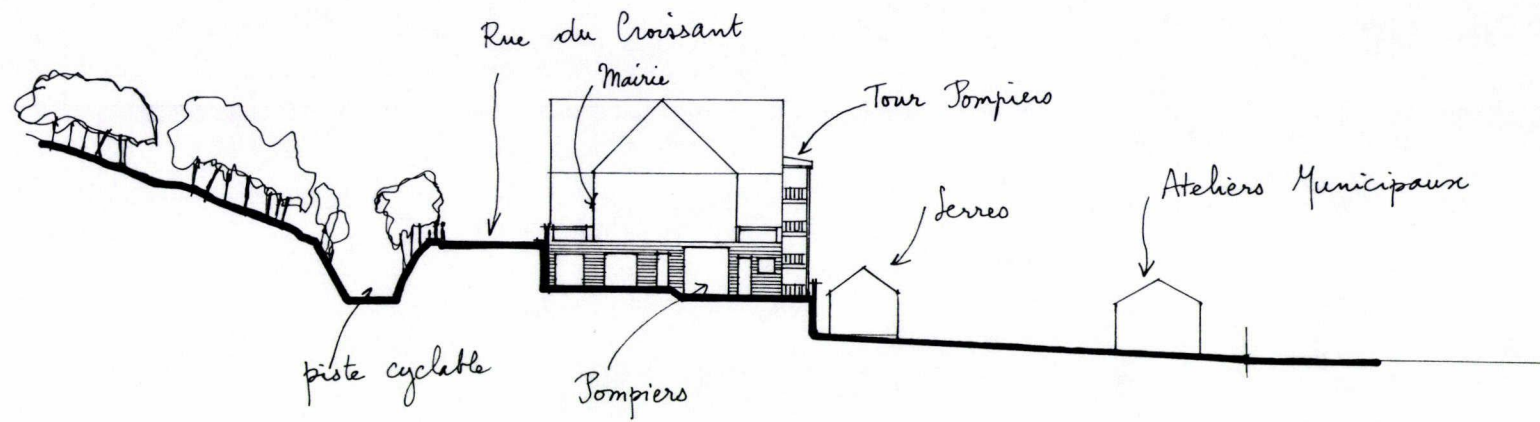 Rue du Croissant
Mairie
Tour Pompiers
Serres
Ateliers Municipaux
piste cyclable
Pompiers